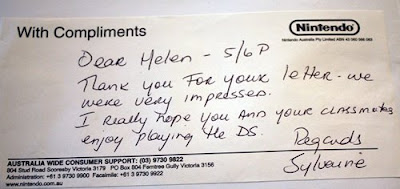 With Compliments
Nintendo
Nintendo Australia Pty Limited ABN 43 060 566 083
Dear Helen - 5/6P
Thank you for your letter - we
were very impressed.
I really hope you and your classmates
enjoy playing the DS.
Regards
Sylvaine
AUSTRALIA WIDE CONSUMER SUPPORT: (03) 9730 9822
804 Stud Road Scoresby Victoria 3179 PO Box 804 Ferntree Gully Victoria 3156
Administration: +61 3 9730 9900 Facsimile: +61 3 9730 9922
www.nintendo.com.au